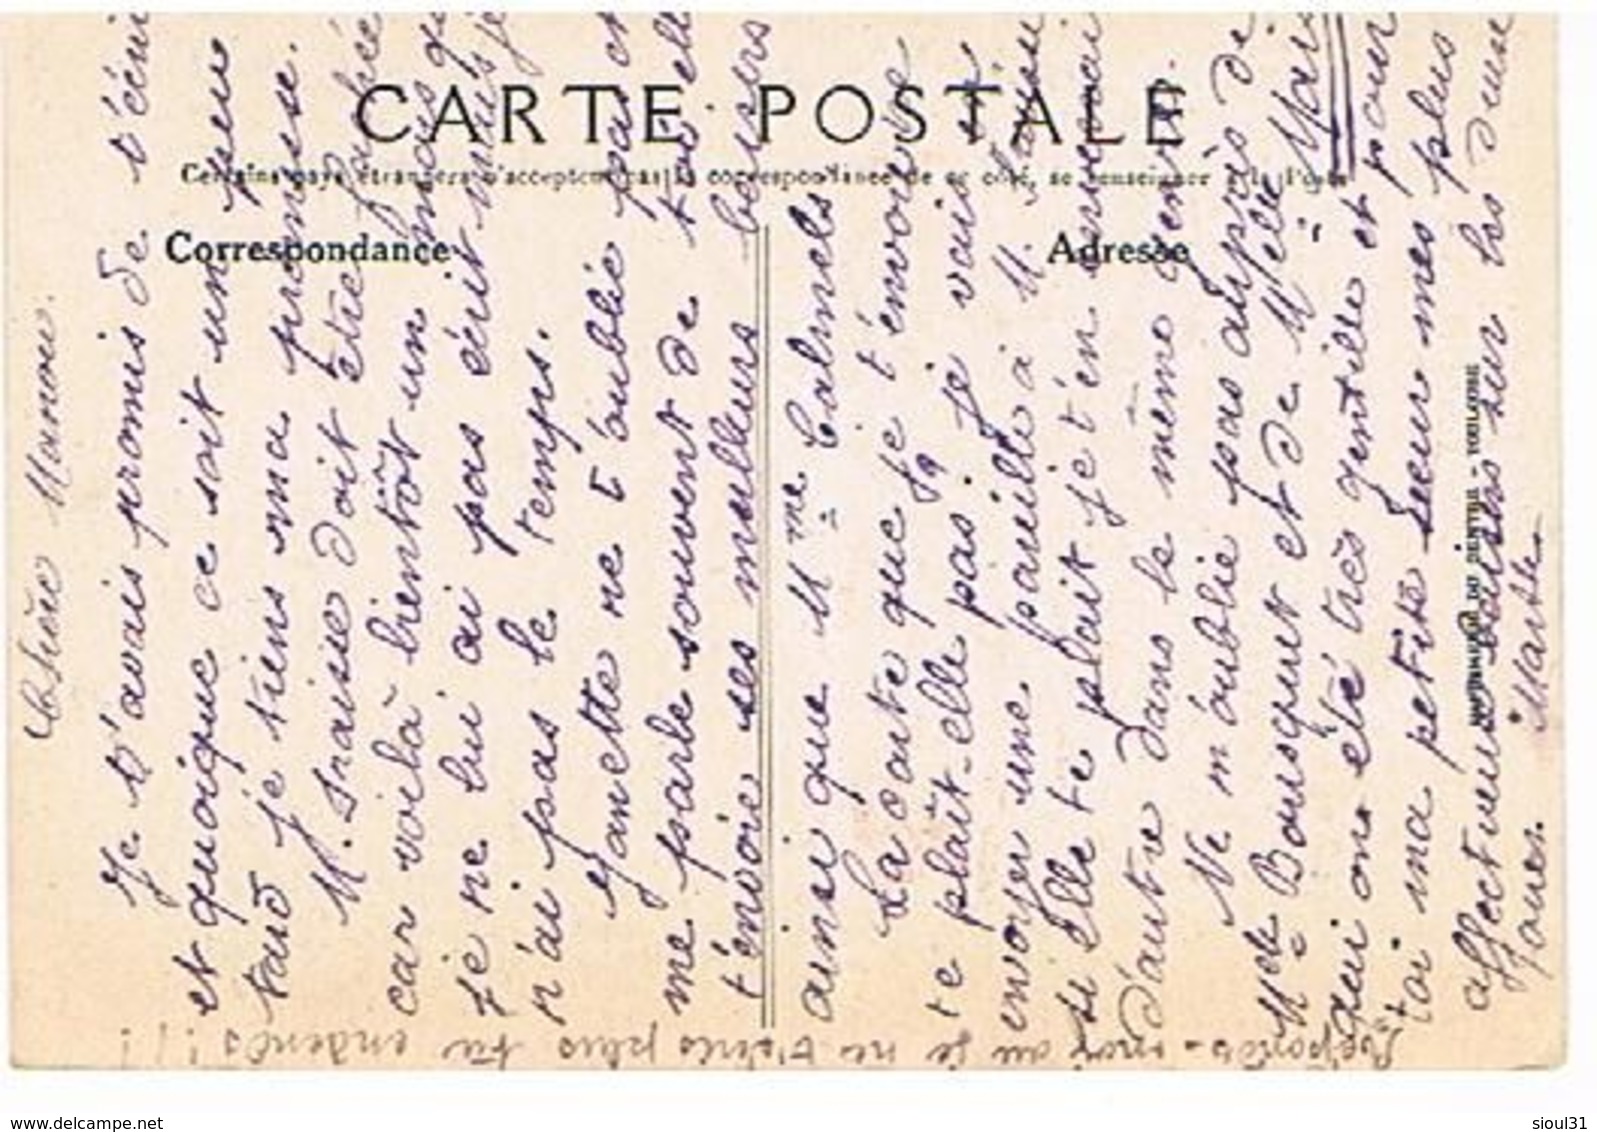 CARTE POSTALE
Certains pays étrangers n'acceptent pas la correspondance de ce côté, se renseigner à la Poste
Correspondance
Adresse
Chère Manou.
Je t'avais promis de t'écrire
et quoique ce soit un peu
tard je tiens ma promesse.
M. Fraisie doit être fachée
car voilà bientôt un mois que
je ne lui ai pas écrit mais je
n'ai pas le temps.
Yanette ne t'oublie pas et
me parle souvent de toi elle
t'envoie ses meilleurs baisers
ainsi que Mme Calmels
La carte que je t'envoie
te plaît-elle pas je vais t'en
envoyer une pareille à M.
si elle te plait je t'en enverrai
d'autre dans le même genre.
Ne m'oublie pas auprès de
Mde Bousquet et de Melle Mari
qui on été très gentille et pour
toi ma petite sœur mes plus
affectueux baisers sur les deux
joues. Marte
Réponds-moi ou je ne t'écris plus tu entends !!!
IMPRIMERIE DU CENTRE - TOULOUSE
sioul31